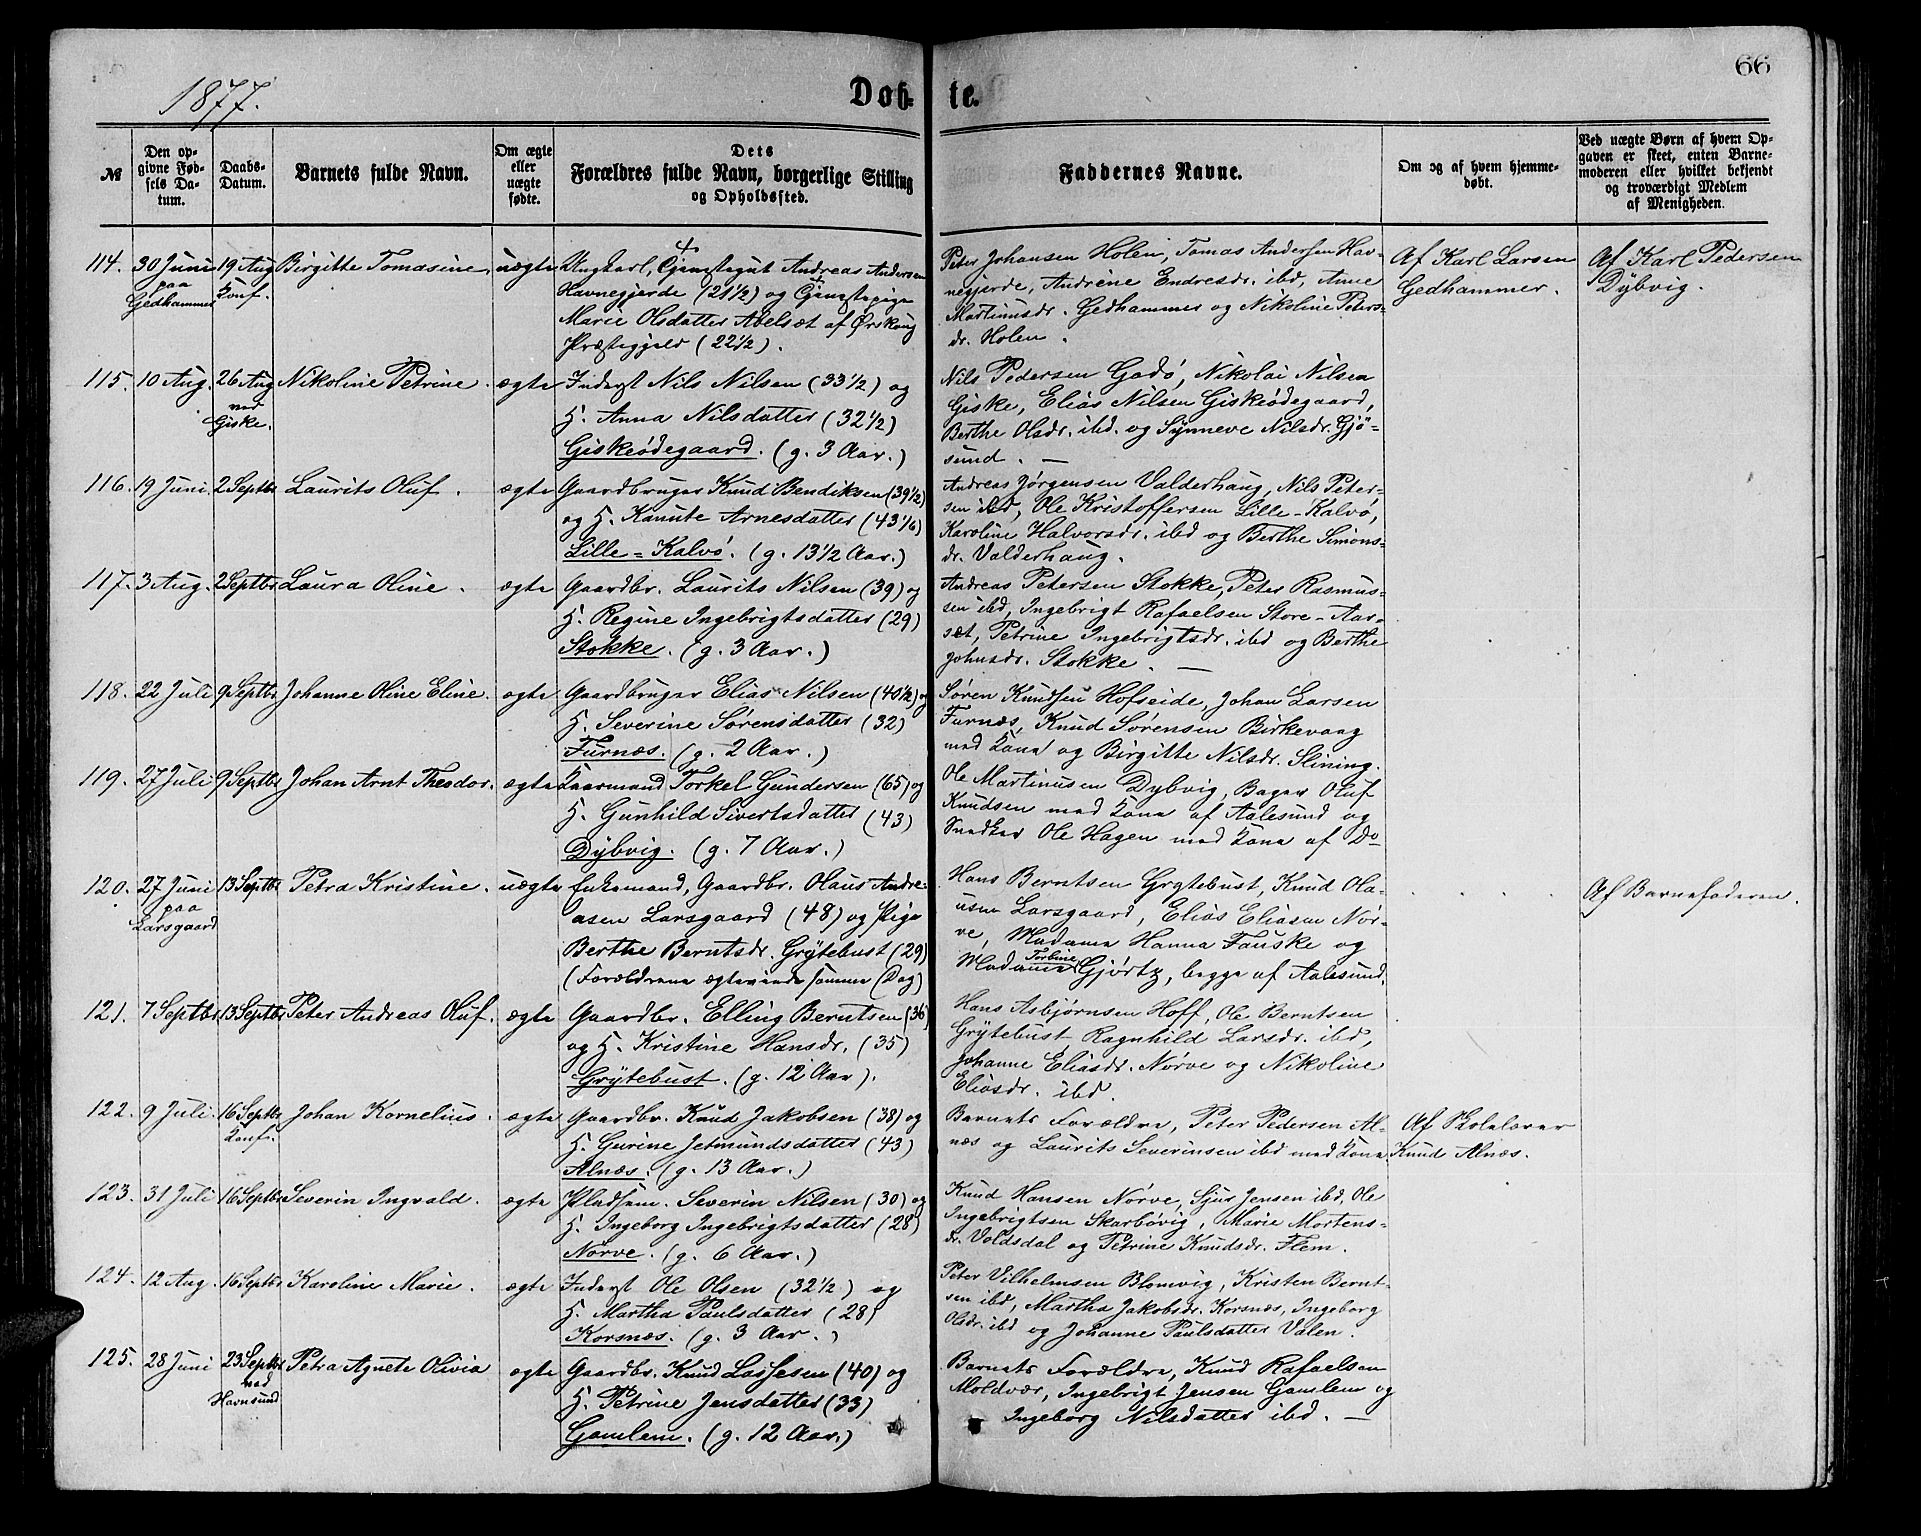 66
1877.
Døb- te.
№
Den op-
givne Fød-
sels Da-
tum.
Daabs-
Datum.
Barnets fulde Navn.
Om ægte
eller
uægte
fødte.
Dets
Forældres fulde Navn, borgerlige Stilling
og Opholdssted.
Faddernes Navne.
Om og af hvem hjemme-
døbt.
Ved uægte Børn af hvem Op-
gaven er skeet, enten Barne-
moderen eller hvilket bekjendt
og troværdigt Medlem
af Menigheden.
114. 30 Juni paa Gedhammer 19 Aug Konf. Birgitte Tomasine uægte
Ungkarl, Tjenestegut Andreas Andersen
Havnegjerde (21 1/2) og Tjenestepige
Marie Olsdatter Abelsæt af Ørskoug
Præstegjeld (22 1/2).
Peter Johansen Holen, Tomas Andersen Hav-
negjerde, Andrine Endresdr. ibd, Anne
Martinusdr. Gedhammer og Nikoline Peters-
dr. Holen.
Af Karl Larsen
Gedhammer.
Af Karl Pedersen
Dybvig.
115. 10 Aug. 26 Aug ved Giske. Nikoline Petrine. ægte
Inderst Nils Nilsen (33 1/2) og
H. Anna Nilsdatter (32 1/2)
Giskeødegaard. (g. 3 Aar.)
Nils Pedersen Godø, Nikolai Nilsen
Giske, Elias Nilsen Giskeødegaard,
Berthe Olsdr. ibd. og Synneve Nilsdr. Gjø-
sund. —
116. 19 Juni. 2 Septbr Laurits Oluf. ægte
Gaardbruger Knud Bendiksen (39 1/2)
og H. Kanute Arnesdatter (43 1/6)
Lille-Kalvø. (g. 13 1/2 Aar.)
Andreas Jørgensen Valderhaug, Nils Peter-
sen ibd, Ole Kristoffersen Lille-Kalvø,
Karoline Halvorsdr. ibd og Berthe Simons-
dr. Valderhaug.
117. 3 Aug. 2 Septbr Laura Oline. ægte
Gaardbr. Laurits Nilsen (39) og
H. Regine Ingebrigtsdatter (29)
Stokke. (g. 3 Aar.)
Andreas Petersen Stokke, Peter Rasmus-
sen ibd, Ingebrigt Rafaelsen Store-Aar-
sæt, Petrine Ingebrigtsdr. ibd og Berthe
Johnsdr. Stokke. —
118. 22 Juli 9 Septbr Johanne Oline Eline. ægte
Gaardbruger Elias Nilsen (40 1/2) og
H. Severine Sørensdatter (32)
Furnæs. (g. 2 Aar.)
Søren Knudsen Hofseide, Johan Larsen
Furnæs, Knud Sørensen Birkevaag
med Kone og Birgitte Nilsdr. Slining.
119. 27 Juli 9 Septbr Johan Arnt Theodor. ægte
Kaarmand Torkel Gundersen (65) og
H. Gunhild Sivertsdatter (43)
Dybvig. (g. 7 Aar.)
Ole Martinusen Dybvig, Bager Oluf
Knudsen med Kone af Aalesund og
Snedker Ole Hagen med Kone af Do-
120. 27 Juni paa Larsgaard 13 Septbr Petra Kristine. uægte
Enkemand, Gaardbr. Olaus Andre-
asen Larsgaard (48) og Pige
Berthe Berntsdr. Grytebust (29)
(Forældrene ægteviede samme Dag)
Hans Berntsen Grytebust, Knud Ola-
usen Larsgaard, Elias Eliasen Nør-
ve, Madame Hanna Fauske og
Madame Torbine Gjørtz, begge af Aalesund.
Af Barnefaderen.
121. 7 Septbr. 13 Septbr Peter Andreas Oluf. ægte
Gaardbr. Elling Berntsen (36)
og H. Kristine Hansdr. (35)
Grytebust. (g. 12 Aar).
Hans Asbjørnsen Hoff, Ole Berntsen
Grytebust, Ragnhild Larsdr. ibd,
Johanne Eliasdr. Nørve og Nikoline
Eliasdr. ibd.
122. 9 Juli. 16 Septbr Konf. Johan Kornelius. ægte
Gaardbr. Knud Jakobsen (38) og
H. Gurine Jetmundsdatter (43)
Alnæs. (g. 13 Aar.)
Barnets Forældre, Peter Pedersen Al-
næs og Laurits Severinsen ibd med Kone.
Af Skolelærer
Knud Alnæs.
123. 31 Juli 16 Septbr Severin Ingvald. ægte
Pladsem. Severin Nilsen (30) og
H. Ingeborg Ingebrigtsdatter (28)
Nørve. (g. 6 Aar.)
Knud Hansen Nørve, Sjur Jensen ibd, Ole
Ingebrigtsen Skarbøvig, Marie Mortens-
dr. Voldsdal og Petrine Knudsdr. Flem.
124. 12 Aug. 16 Septbr Karoline Marie. ægte
Inderst Ole Olsen (32 1/2) og
H. Martha Paulsdatter (28)
Korsnæs. (g. 3 Aar.)
Peter Vilhelmsen Blomvig, Kristen Bernt-
sen ibd, Martha Jakobsdr. Korsnæs, Ingeborg
Olsdr. ibd og Johanne Paulsdatter Valen.
125. 28 Juni 23 Septbr ved Havnsund Petra Agnete Olivia ægte
Gaardbr. Knud Lassesen (40) og
H. Petrine Jensdatter (33)
Gamlem. (g. 12 Aar.)
Barnets Forældre, Knud Rafaelsen
Moldvær, Ingebrigt Jensen Gamlem og
Ingeborg Nilsdatter ibd. —